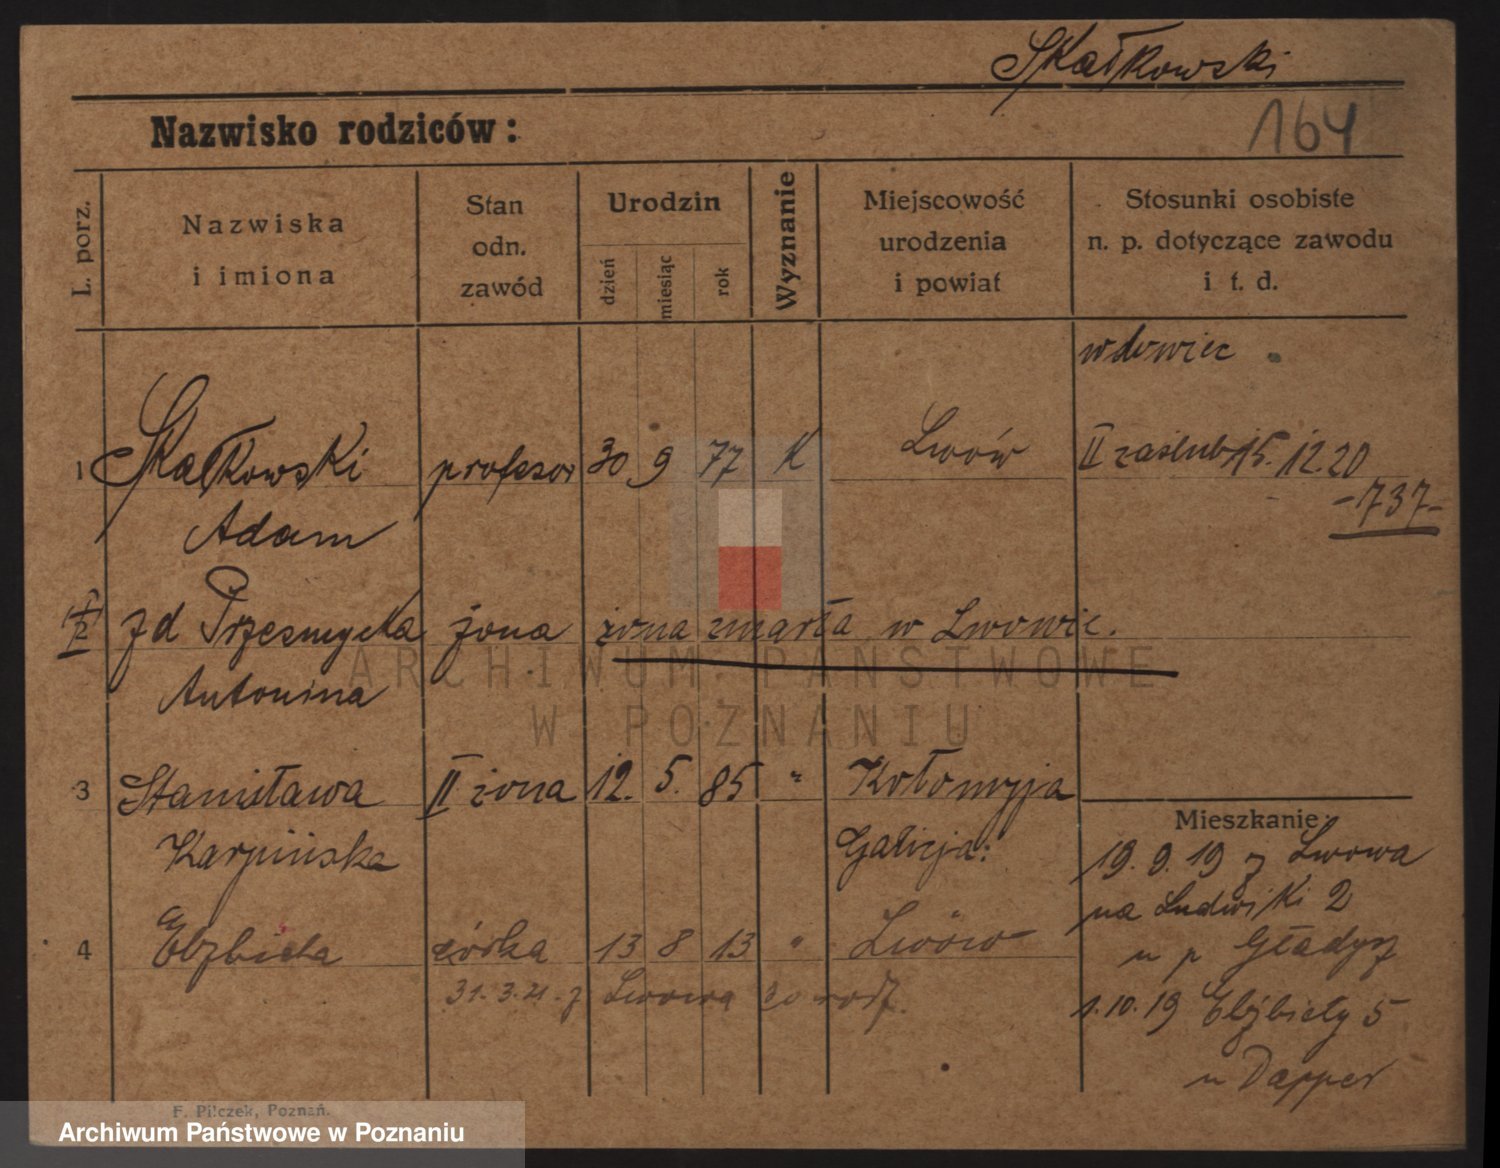 Skałkowski
Nazwisko rodziców:
164
L. porz.
Nazwiska
i imiona
Stan
odn.
zawód
Urodzin
dzień
miesiąc
rok
Wyznanie
Miejscowość
urodzenia
i powiat
Stosunki osobiste
n. p. dotyczące zawodu
i t. d.
wdowiec
1 Skałkowski profesor 30 9 77 K Lwów II zaślub. 15. 12. 20
-737-
Adam
2 zd Przesmycka żona żona zmarła w Lwowie.
Antonina
3 Stanisława II żona 12. 5. 85 " Kołomyja
Karpińska Galicja:
Mieszkanie:
19. 9. 19 z Lwowa
na Ludwiki 2
4 Elzbieta córka 13 8 13 " Lwów
u p Gładysz
31. 3. 21. z Lwowa do rodz.
1. 10. 19 Elżbiety 5
u Dapper
F. Pilczek, Poznań.
ARCHIWUM PAŃSTWOWE
W POZNANIU
Archiwum Państwowe w Poznaniu